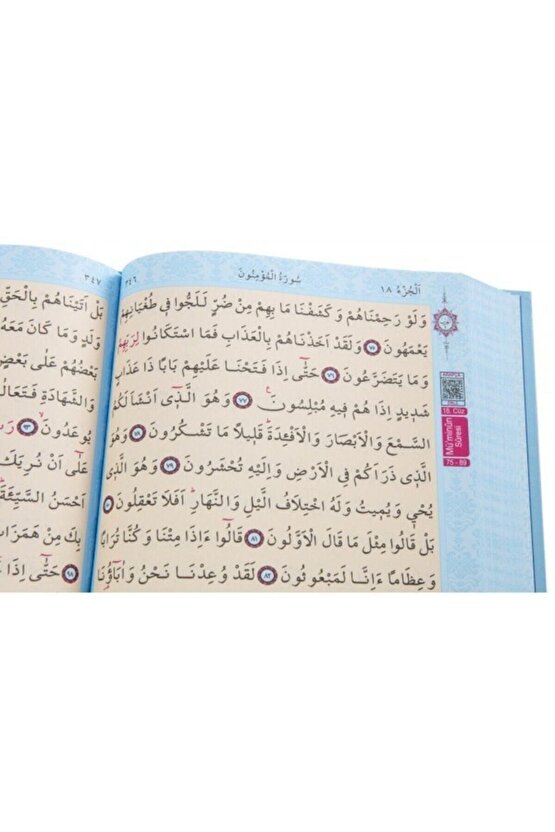 اَلْجُزْءُ ١٨
سُورَةُ الْمُؤْمِنُونَ
٣٤٦
وَلَوْ رَحِمْنَاهُمْ وَكَشَفْنَا مَا بِهِمْ مِنْ ضُرٍّ لَلَجُّوا فٖى طُغْيَانِهِمْ
يَعْمَهُونَ ٧٥ وَلَقَدْ اَخَذْنَاهُمْ بِالْعَذَابِ فَمَا اسْتَكَانُوا لِرَبِّهِمْ
وَمَا يَتَضَرَّعُونَ ٧٦ حَتّٰٓى اِذَا فَتَحْنَا عَلَيْهِمْ بَابًا ذَا عَذَابٍ
شَدٖيدٍ اِذَا هُمْ فٖيهِ مُبْلِسُونَ ٧٧ وَهُوَ الَّذٖٓى اَنْشَاَ لَكُمُ
السَّمْعَ وَالْاَبْصَارَ وَالْاَفْئِدَةَ قَلٖيلًا مَا تَشْكُرُونَ ٧٨ وَهُوَ
الَّذٖى ذَرَاَكُمْ فِى الْاَرْضِ وَاِلَيْهِ تُحْشَرُونَ ٧٩ وَهُوَ الَّذٖى
يُحْيٖ وَيُمٖيتُ وَلَهُ اخْتِلَافُ الَّيْلِ وَالنَّهَارِ اَفَلَا تَعْقِلُونَ ٨٠
بَلْ قَالُوا مِثْلَ مَا قَالَ الْاَوَّلُونَ ٨١ قَالُٓوا ءَاِذَا مِتْنَا وَكُنَّا تُرَابًا
وَعِظَامًا ءَاِنَّا لَمَبْعُوثُونَ ٨٢ لَقَدْ وُعِدْنَا نَحْنُ وَاٰبَٓاؤُ۬نَا
18. Cüz
Mü'minûn
Sûresi
75 - 89
٣٤٧
بَلْ اَتَيْنَاهُمْ بِالْحَقِّ
وَلَدٍ وَمَا كَانَ مَعَهُ
بَعْضُهُمْ عَلٰى بَعْضٍ
وَالشَّهَادَةِ فَتَعَالٰى
يُوعَدُونَ ٩٣
عَلٰٓى اَنْ نُرِيَكَ
اَحْسَنُ السَّيِّئَةَ
بِكَ مِنْ هَمَزَاتِ
٩٨ حَتّٰٓى اِذَا